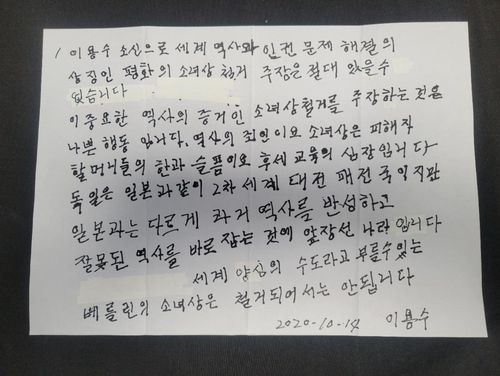 이용수 소신으로 세계 역사와 인권 문제 해결의
상징인 평화의 소녀상 철거 주장은 절대 있을수
없습니다
이 중요한 역사의 증거인 소녀상철거를 주장하는 것은
나쁜 행동 입니다. 역사의 죄인이요 소녀상은 피해자
할머니들의 한과 슬픔이요 후세 교육의 심장입니다
독일은 일본과 같이 2차 세계 대전 패전국 이지만
일본과는 다르게 과거 역사를 반성하고
잘못된 역사를 바로 잡는 것에 앞장선 나라 입니다
세계 양심의 수도라고 부를수있는
베를린의 소녀상은 철거되어서는 안됩니다
2020-10-14 이용수